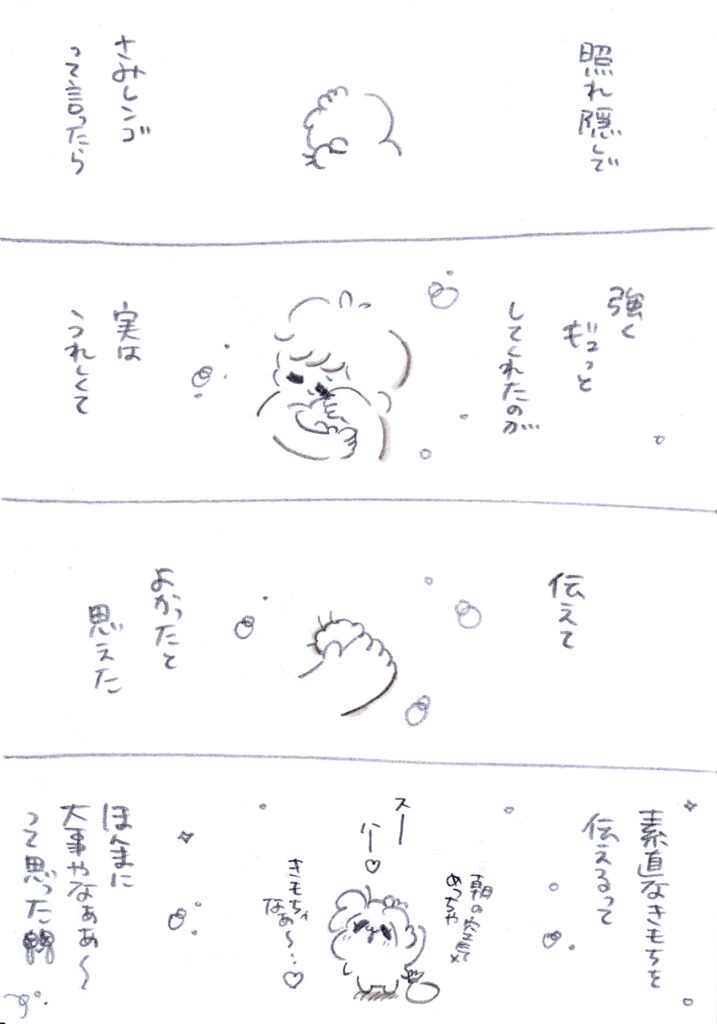 照れ隠しで
さみしンゴ
って言ったら
強く
ギュっと
してくれたのが
実は
うれしくて
伝えて
よかったと
思えた
素直なきもちを
伝えるって
朝の空気
めっちゃ
スー
ハー♡
きもちィ
なぁ〜…♡
ほんまに
大事やなぁぁ〜
って思った